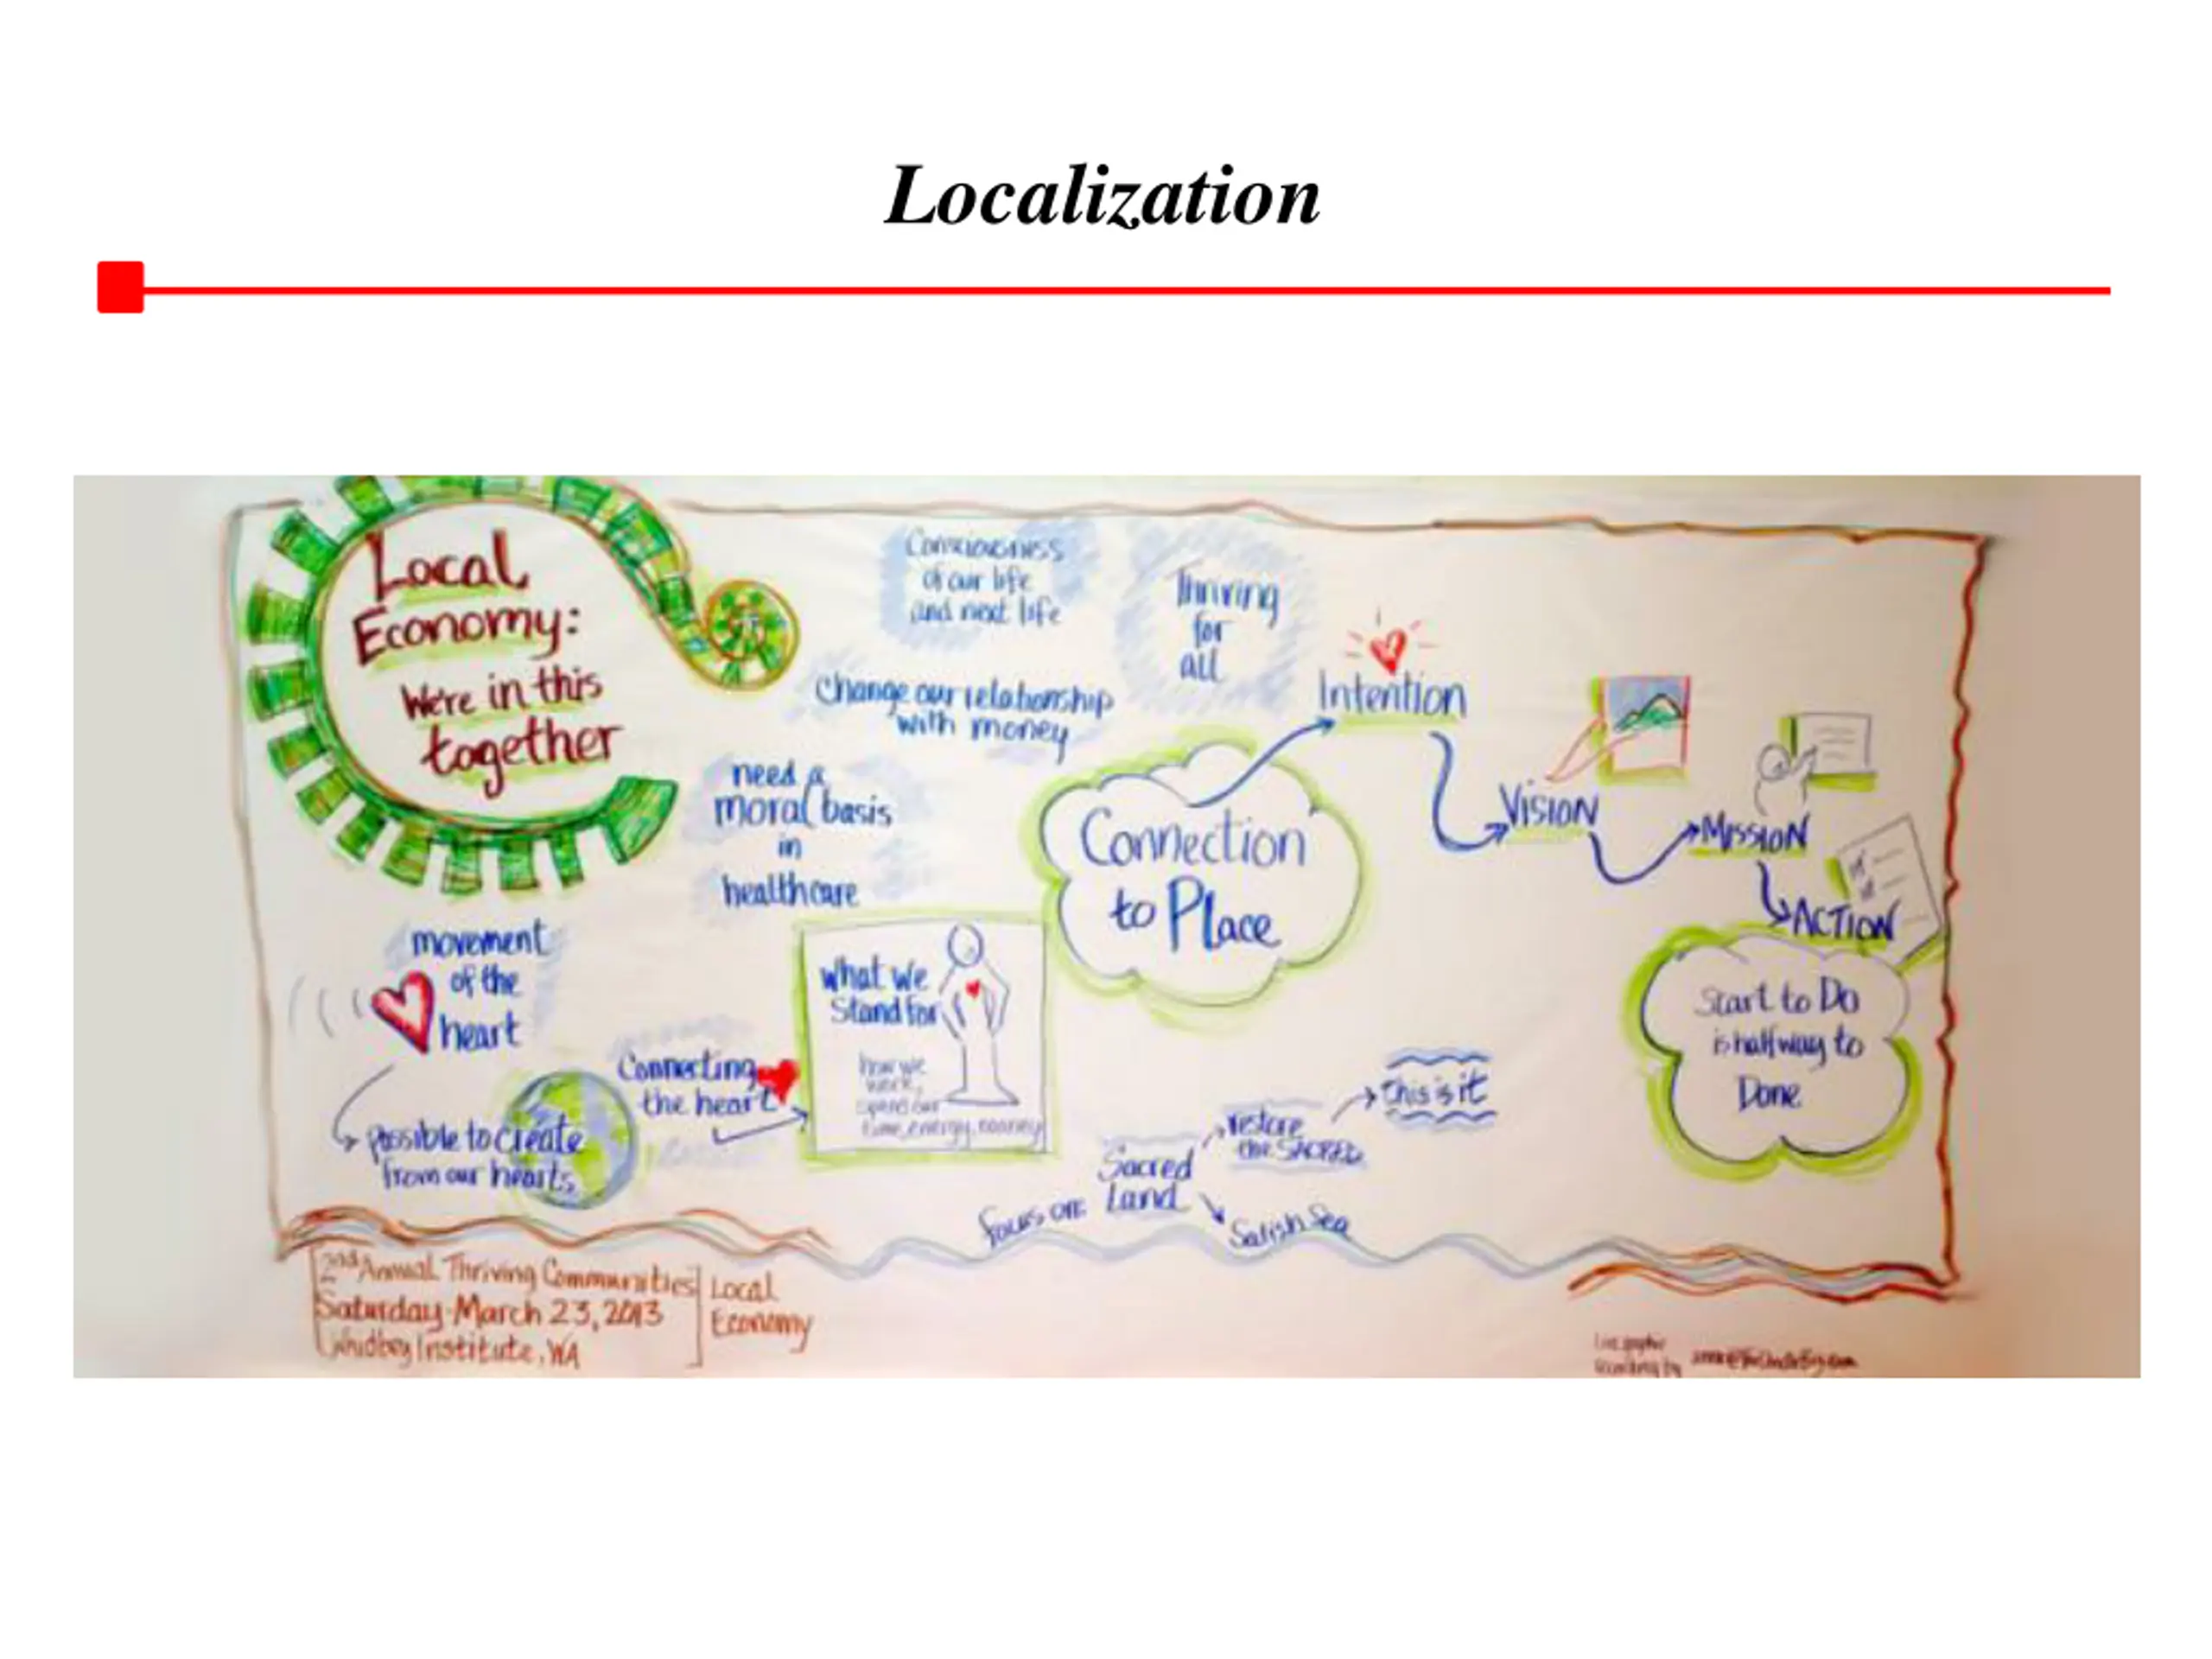 Localization
Local
Economy:
We're in this
together
Consciousness
of our life
and next life
Thriving
for
all
Change our relationship
with money
need a
moral basis
in
healthcare
Connection
to Place
Intention
Vision
Mission
ACTION
Start to Do
is halfway to
Done
movement
of the
heart
possible to create
from our hearts
Connecting
the heart
What we
Stand for
how we
work,
spend our
time, energy, money
focus on:
Sacred
Land
restore
the SACRED
this is it
Salish Sea
2nd Annual Thriving Communities
Saturday March 23, 2013
Whidbey Institute, WA
Local
Economy
Live graphic
recording by